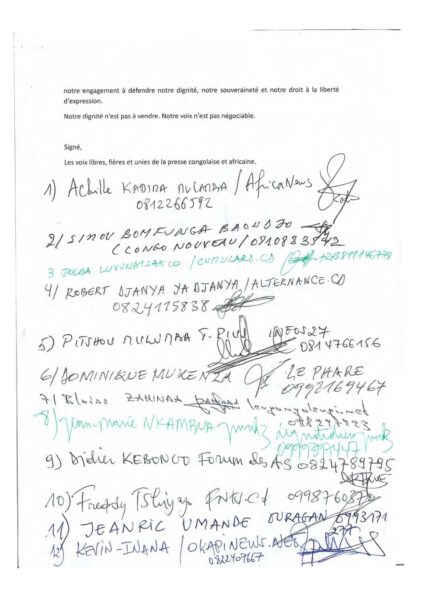 notre engagement à défendre notre dignité, notre souveraineté et notre droit à la liberté
d'expression.
Notre dignité n'est pas à vendre. Notre voix n'est pas négociable.
Signé,
Les voix libres, fières et unies de la presse congolaise et africaine.
1) Achille KADIMA MULAMBA / AfricaNews
0812266592
2/ SIMON BOMPUNGA
(CONGO NOUVEAU / 0810883542
3 JOLGA LUVUNDISAKIO / CUMULARD.CD
4/ ROBERT DJANYA YA DJANYA / ALTERNANCE.CD
0824115838
5) PITSHOU MULUMBA INFOS27
0814766156
6/ DOMINIQUE MUKENZA LE PHARE
0998169467
7/ Blaise
8) Jean-Marie NKAMBUA
9) Didier KEBONGO Forum des AS 0824789795
10) Freddy Tshijika
11) JEANRIC UMANDE OURAGAN 0993171
277
12) KEVIN-INANA / OKAPINEWS.NET
0822407667